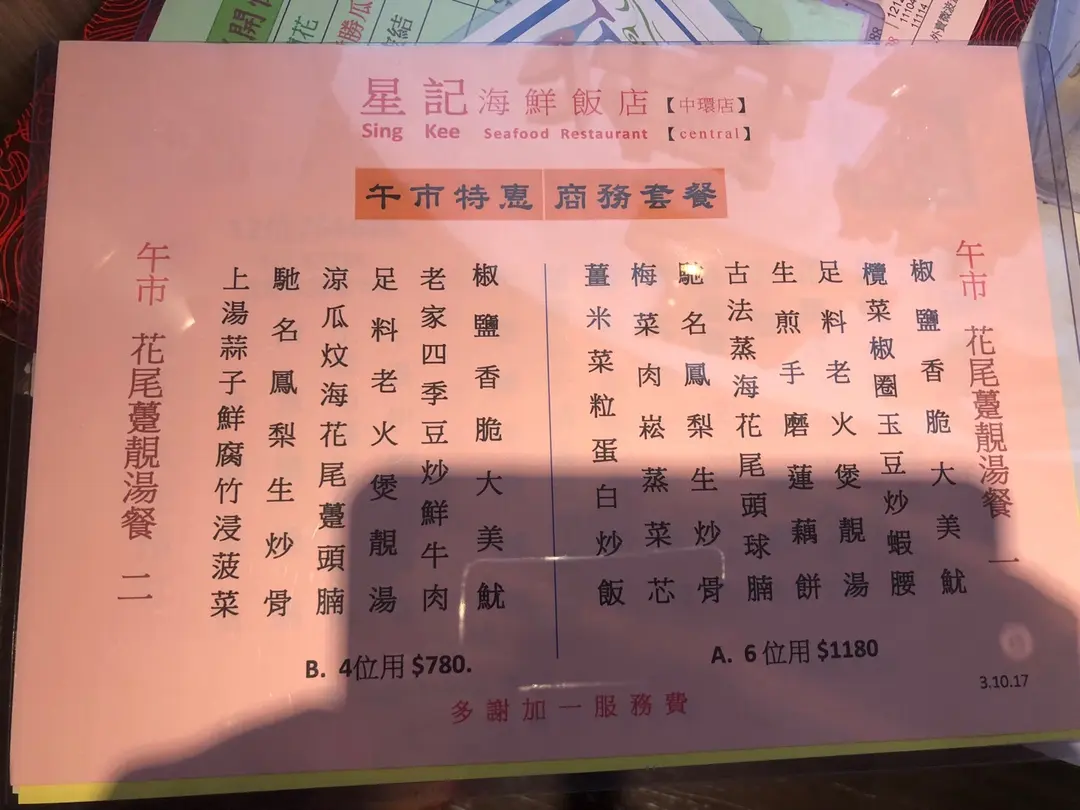 星記海鮮飯店【中環店】
Sing Kee Seafood Restaurant【central】
午市特惠 商務套餐
午市 花尾躉靚湯餐 一
椒鹽香脆大美魷
欖菜椒圈玉豆炒蝦腰
足料老火煲靚湯
生煎手磨蓮藕餅
古法蒸海花尾頭球腩
馳名鳳梨生炒骨
梅菜肉崧蒸菜芯
薑米菜粒蛋白炒飯
A. 6位用 $1180
椒鹽香脆大美魷
老家四季豆炒鮮牛肉
足料老火煲靚湯
涼瓜炆海花尾躉頭腩
馳名鳳梨生炒骨
上湯蒜子鮮腐竹浸菠菜
午市 花尾躉靚湯餐 二
B. 4位用 $780.
3.10.17
多謝加一服務費